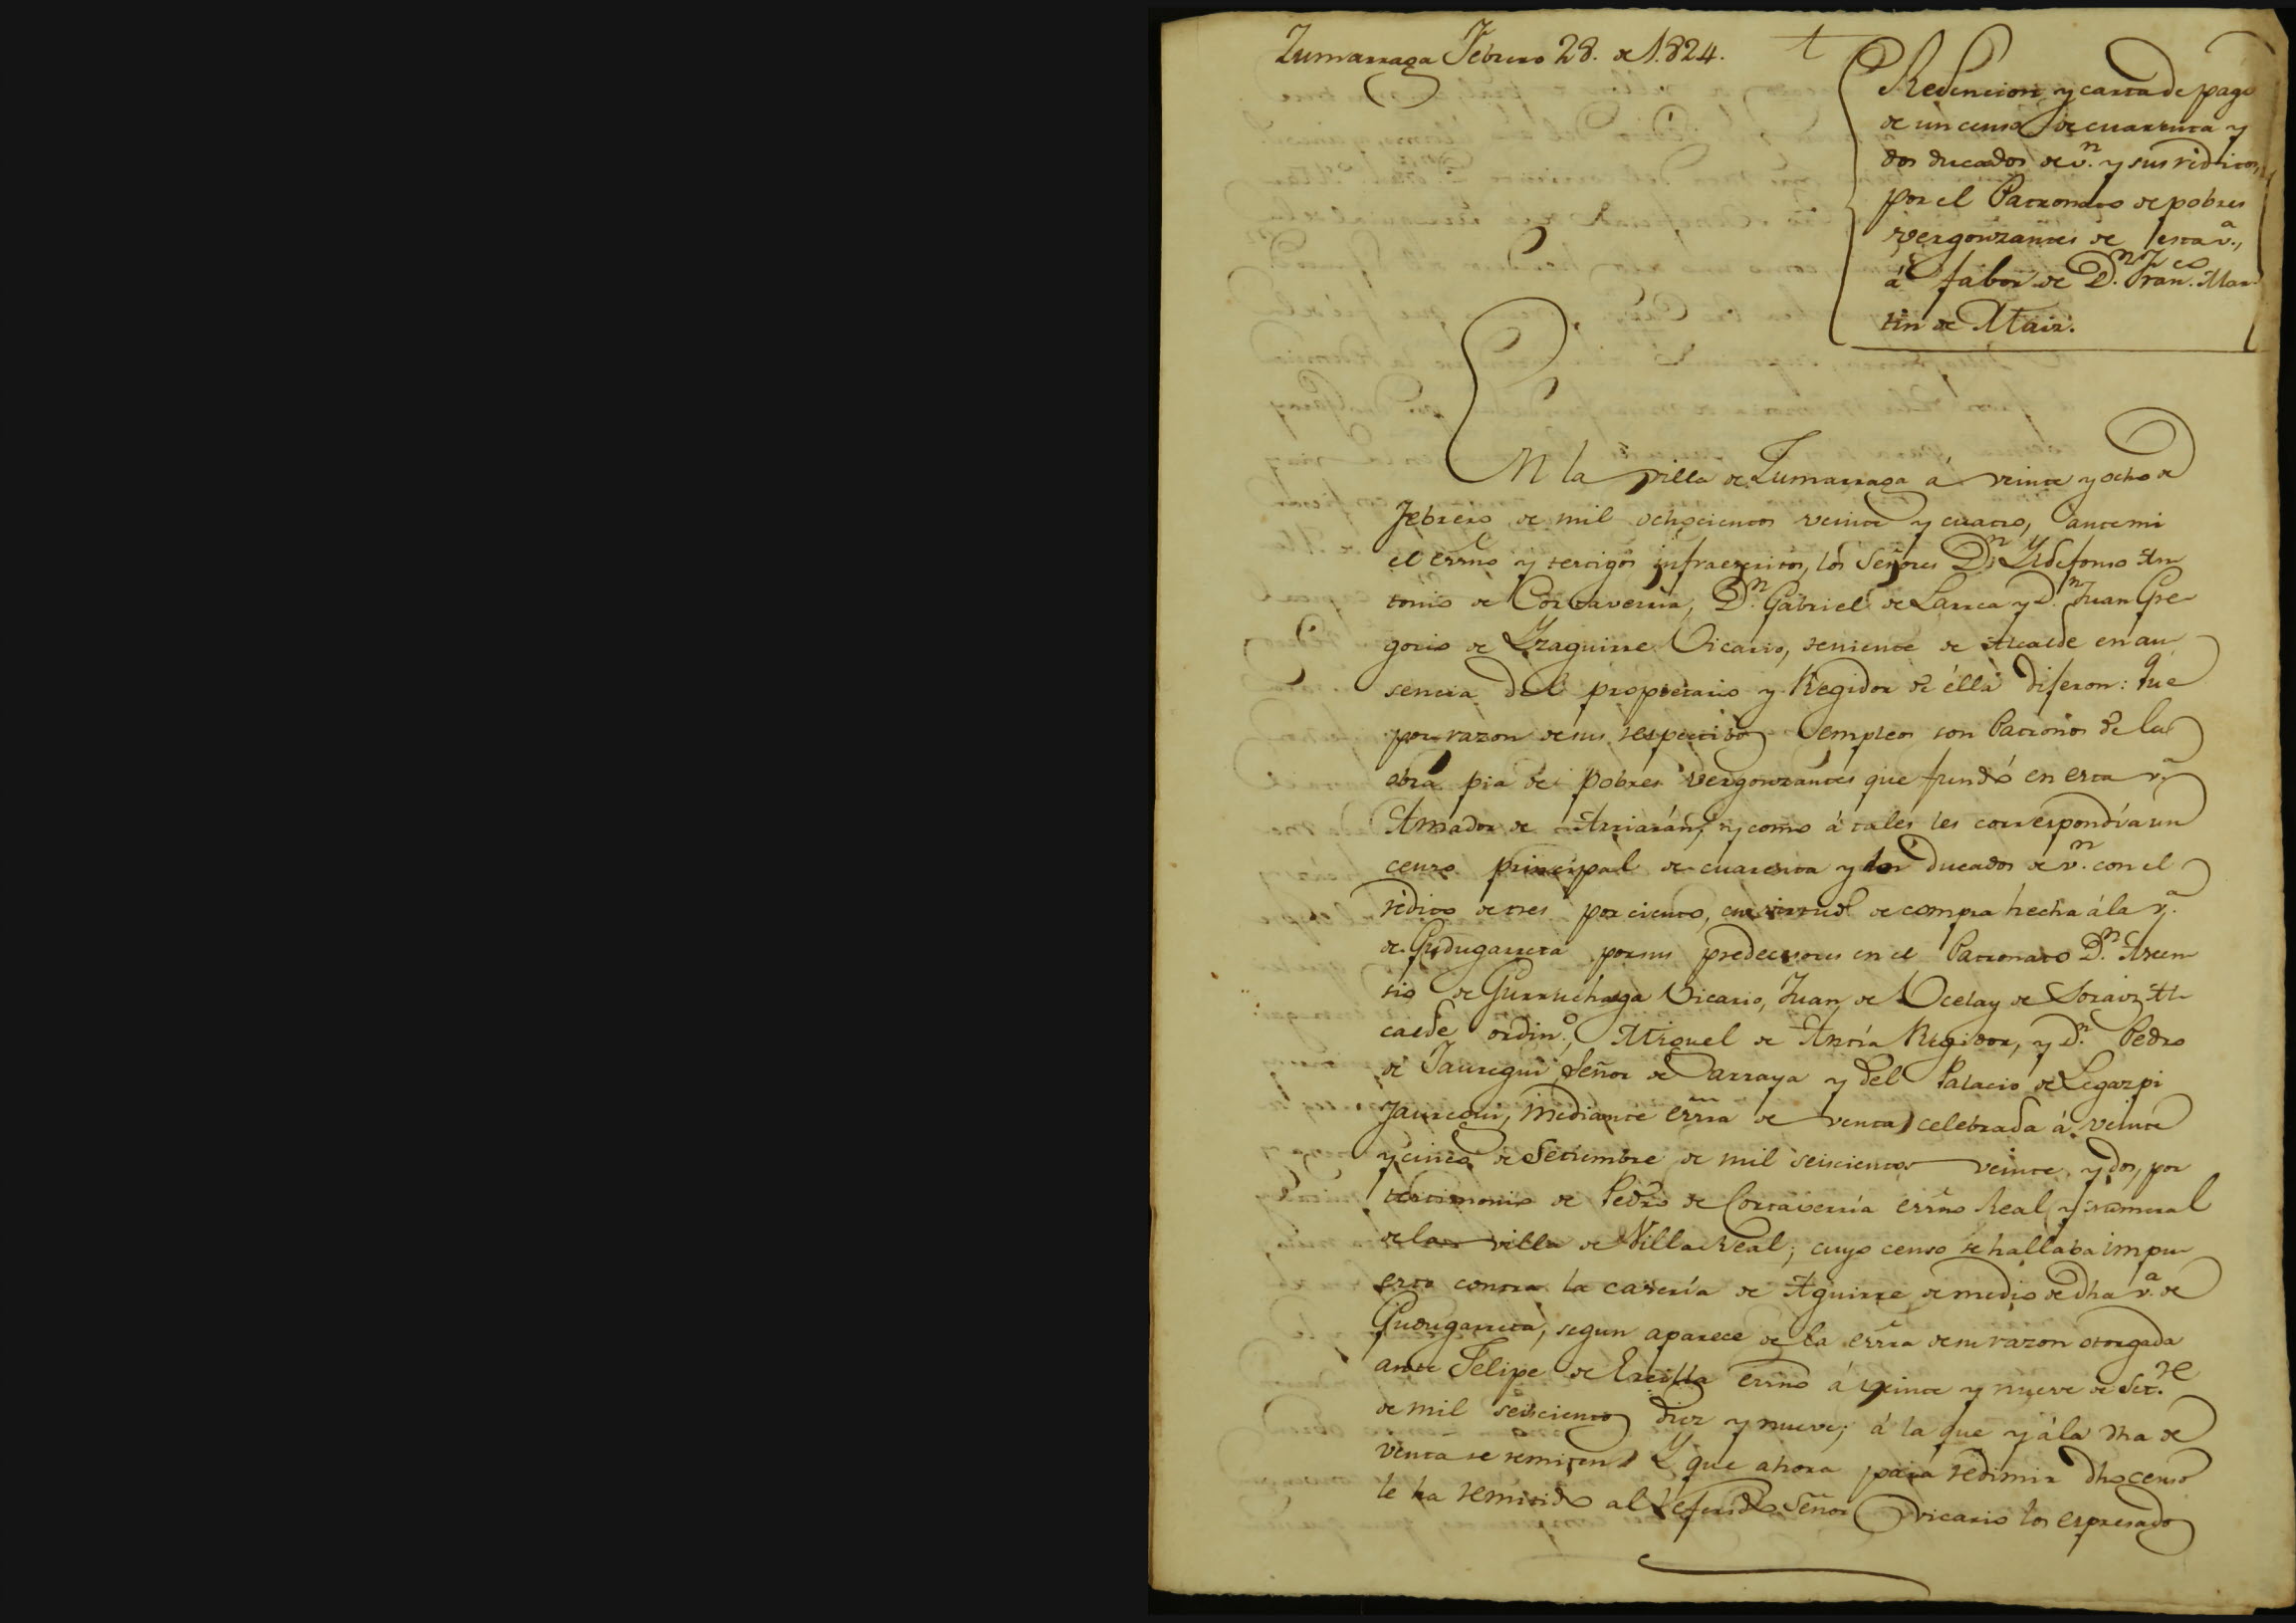 Zumarraga Febrero 28. de 1.824.
Redencion y carta de pago
de un censo de cuarenta y
dos ducados de v.n y sus reditos,
por el Patronato de pobres
vergonzantes de esta v.a,
á fabor de D.n Fran.co Mar-
tin de Alaiz.
En la villa de Zumarraga á veinte y ocho de
Febrero de mil ochocientos veinte y cuatro, ante mi
el essno y testigos infraescritos, los Señores D.n Yldefonso An-
tonio de Cortaverria, D.n Gabriel de Larrea y D.n Juan Gre-
gorio de Yzaguirre Vicario, teniente de Alcalde en au-
sencia del propietario y Regidor de élla dijeron: Que
por razon de sus respectivos empleos son Patronos de la
obra pia de pobres vergonzantes que fundó en esta v.a
Amador de Arriarán, y como á tales les correspondía un
censo principal de cuarenta y dos ducados de v.n con el
rédito de tres por ciento, en virtud de compra hecha á la v.a
de Gudugarreta por sus predecesores en el Patronato D.n Ascen-
sio de Gurruchaga Vicario, Juan de Ocelay de Soraiz Al-
calde ordin.o, Miguel de Antía Regidor, y D.n Pedro
de Jauregui Señor de Darraya y del Palacio de Legazpi
Jauregui, mediante essra de venta celebrada á veinte
y cinco de Setiembre de mil seiscientos veinte y dos, por
testimonio de Pedro de Cortaverría essno Real y numeral
de la villa de Villa Real; cuyo censo se hallaba impu-
esto contra la casería de Aguirre de medio de dha v.a de
Gudugarreta, segun aparece de la essra de su razon otorgada
ante Felipe de Ercilla essno á veinte y nueve de Set.re
de mil seiscientos diez y nueve; á la que y á la dha de
venta se remiten Y que ahora para redimir dho censo
le ha remitido al referido Señor Vicario los espresados